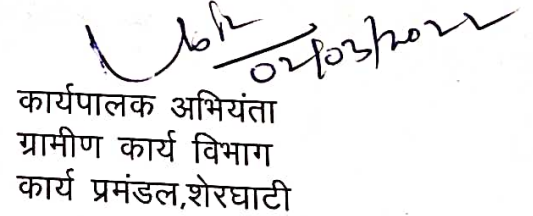 02/03/2022
कार्यपालक अभियंता
ग्रामीण कार्य विभाग
कार्य प्रमंडल,शेरघाटी